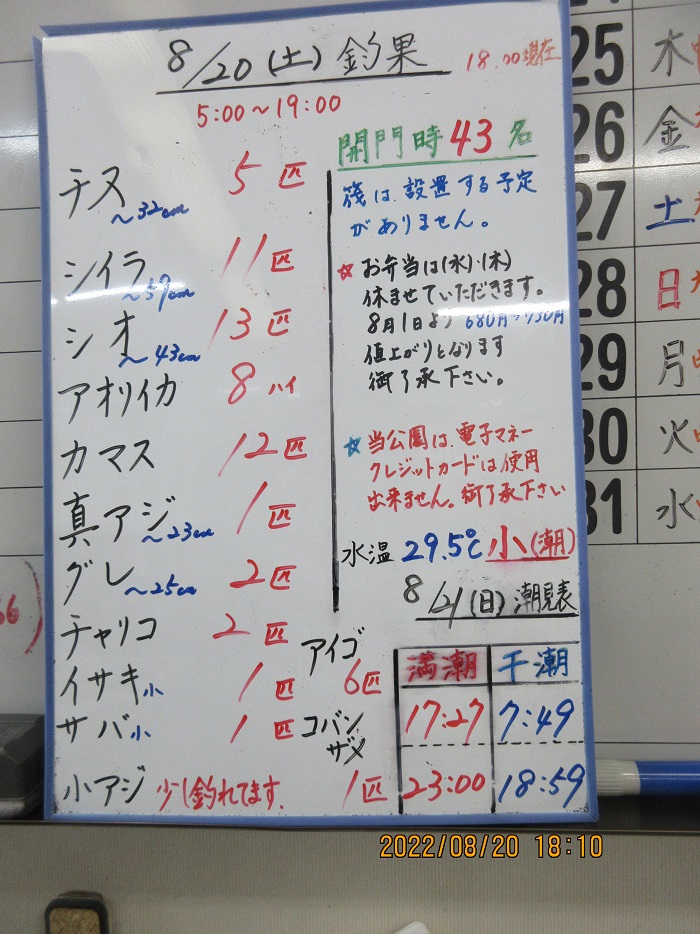 8/20(土)釣果
18.00現在
5:00～19:00
チヌ ～32cm 5匹
シイラ ～59cm 11匹
シオ ～43cm 13匹
アオリイカ 8ハイ
カマス 12匹
真アジ ～23cm 1匹
グレ ～25cm 2匹
チャリコ 2匹
イサキ小 1匹
サバ小 1匹
小アジ 少し釣れてます.
アイゴ
6匹
コバン
ザメ
1匹
開門時43名
筏は、設置する予定
がありません。
☆お弁当は(水)・(木)
休ませていただきます。
8月1日より 680円→730円
値上がりとなります
御了承下さい。
☆当公園は、電子マネー
クレジットカードは使用
出来ません。御了承下さい
水温 29.5℃ 小(潮)
8/21(日)潮見表
満潮 干潮
17:27 7:49
23:00 18:59
25 木
26 金
27 土
28 日
29 月
30 火
31 水
2022/08/20 18:10